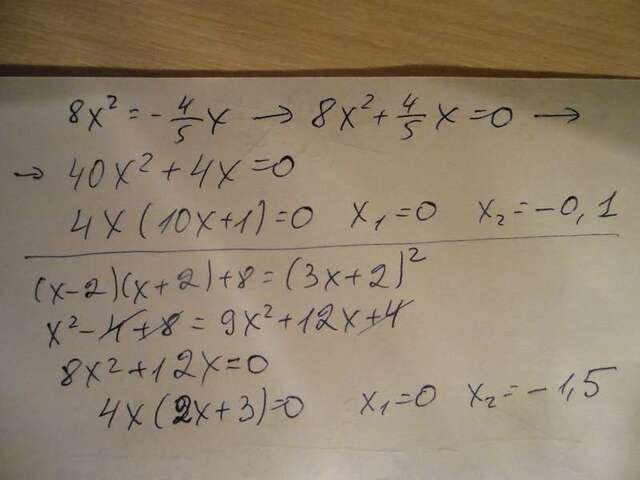 8x² = -4/5x → 8x² + 4/5x = 0 →
→ 40x² + 4x = 0
4x(10x+1) = 0 x₁ = 0 x₂ = -0,1
(x-2)(x+2)+8 = (3x+2)²
x² - 4 + 8 = 9x² + 12x + 4
8x² + 12x = 0
4x(2x+3) = 0 x₁ = 0 x₂ = -1,5